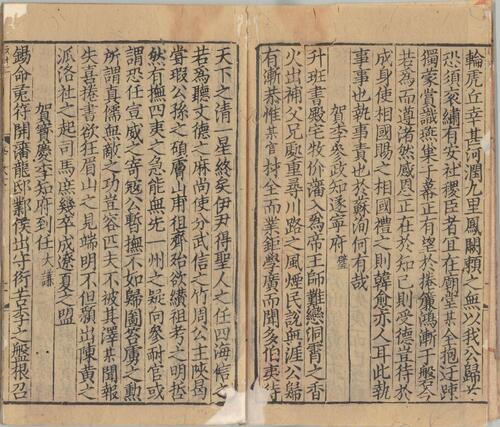 輪虎丘幸甚河潤九里鳳闕賴之無公我公歸兮
恐須衮繡有安社稷臣者宜在廟堂某全抱汪疎
獨蒙賞識燕巢于幕正有望於捲簾鴻漸于磐今
若爲而遵渚然感恩正在於知己則受德豈待於
成身使相國賜之相國禮之則韓愈亦人耳此執
事事也執事責也於蘇洵何有哉
賀李參政知遂寧府 璧
升班書殿宅牧价藩入爲帝王師難戀銅霄之香
火出補父兄處重尋川路之風煙民說無涯公歸
有漸恭惟某官持全而業鉅學廣而聞多伯夷待
天下之清一星終矣伊尹得聖人之任四海信之
若爲聽文德之麻尚使分武信之竹周公主陝曷
嘗瑕公孫之碩膚山甫徂齊殆欲纘祖考之明抵
然有撫四夷之急能無先一州之疑向參耐官或
謂恐任宣威之寄寇公暫撫不如歸圖吞虜之勳
所謂真儒無敵之功豈容匹夫不被其澤某聞報
失喜捲書欲狂眉山之見端明不但顙出陳黃之
派洛社之起司馬庶幾卒成遼夏之盟
賀寳慶李知府到任 大謙
錫命菟符開藩龍邸鄴侯出守衍古李之盤根召